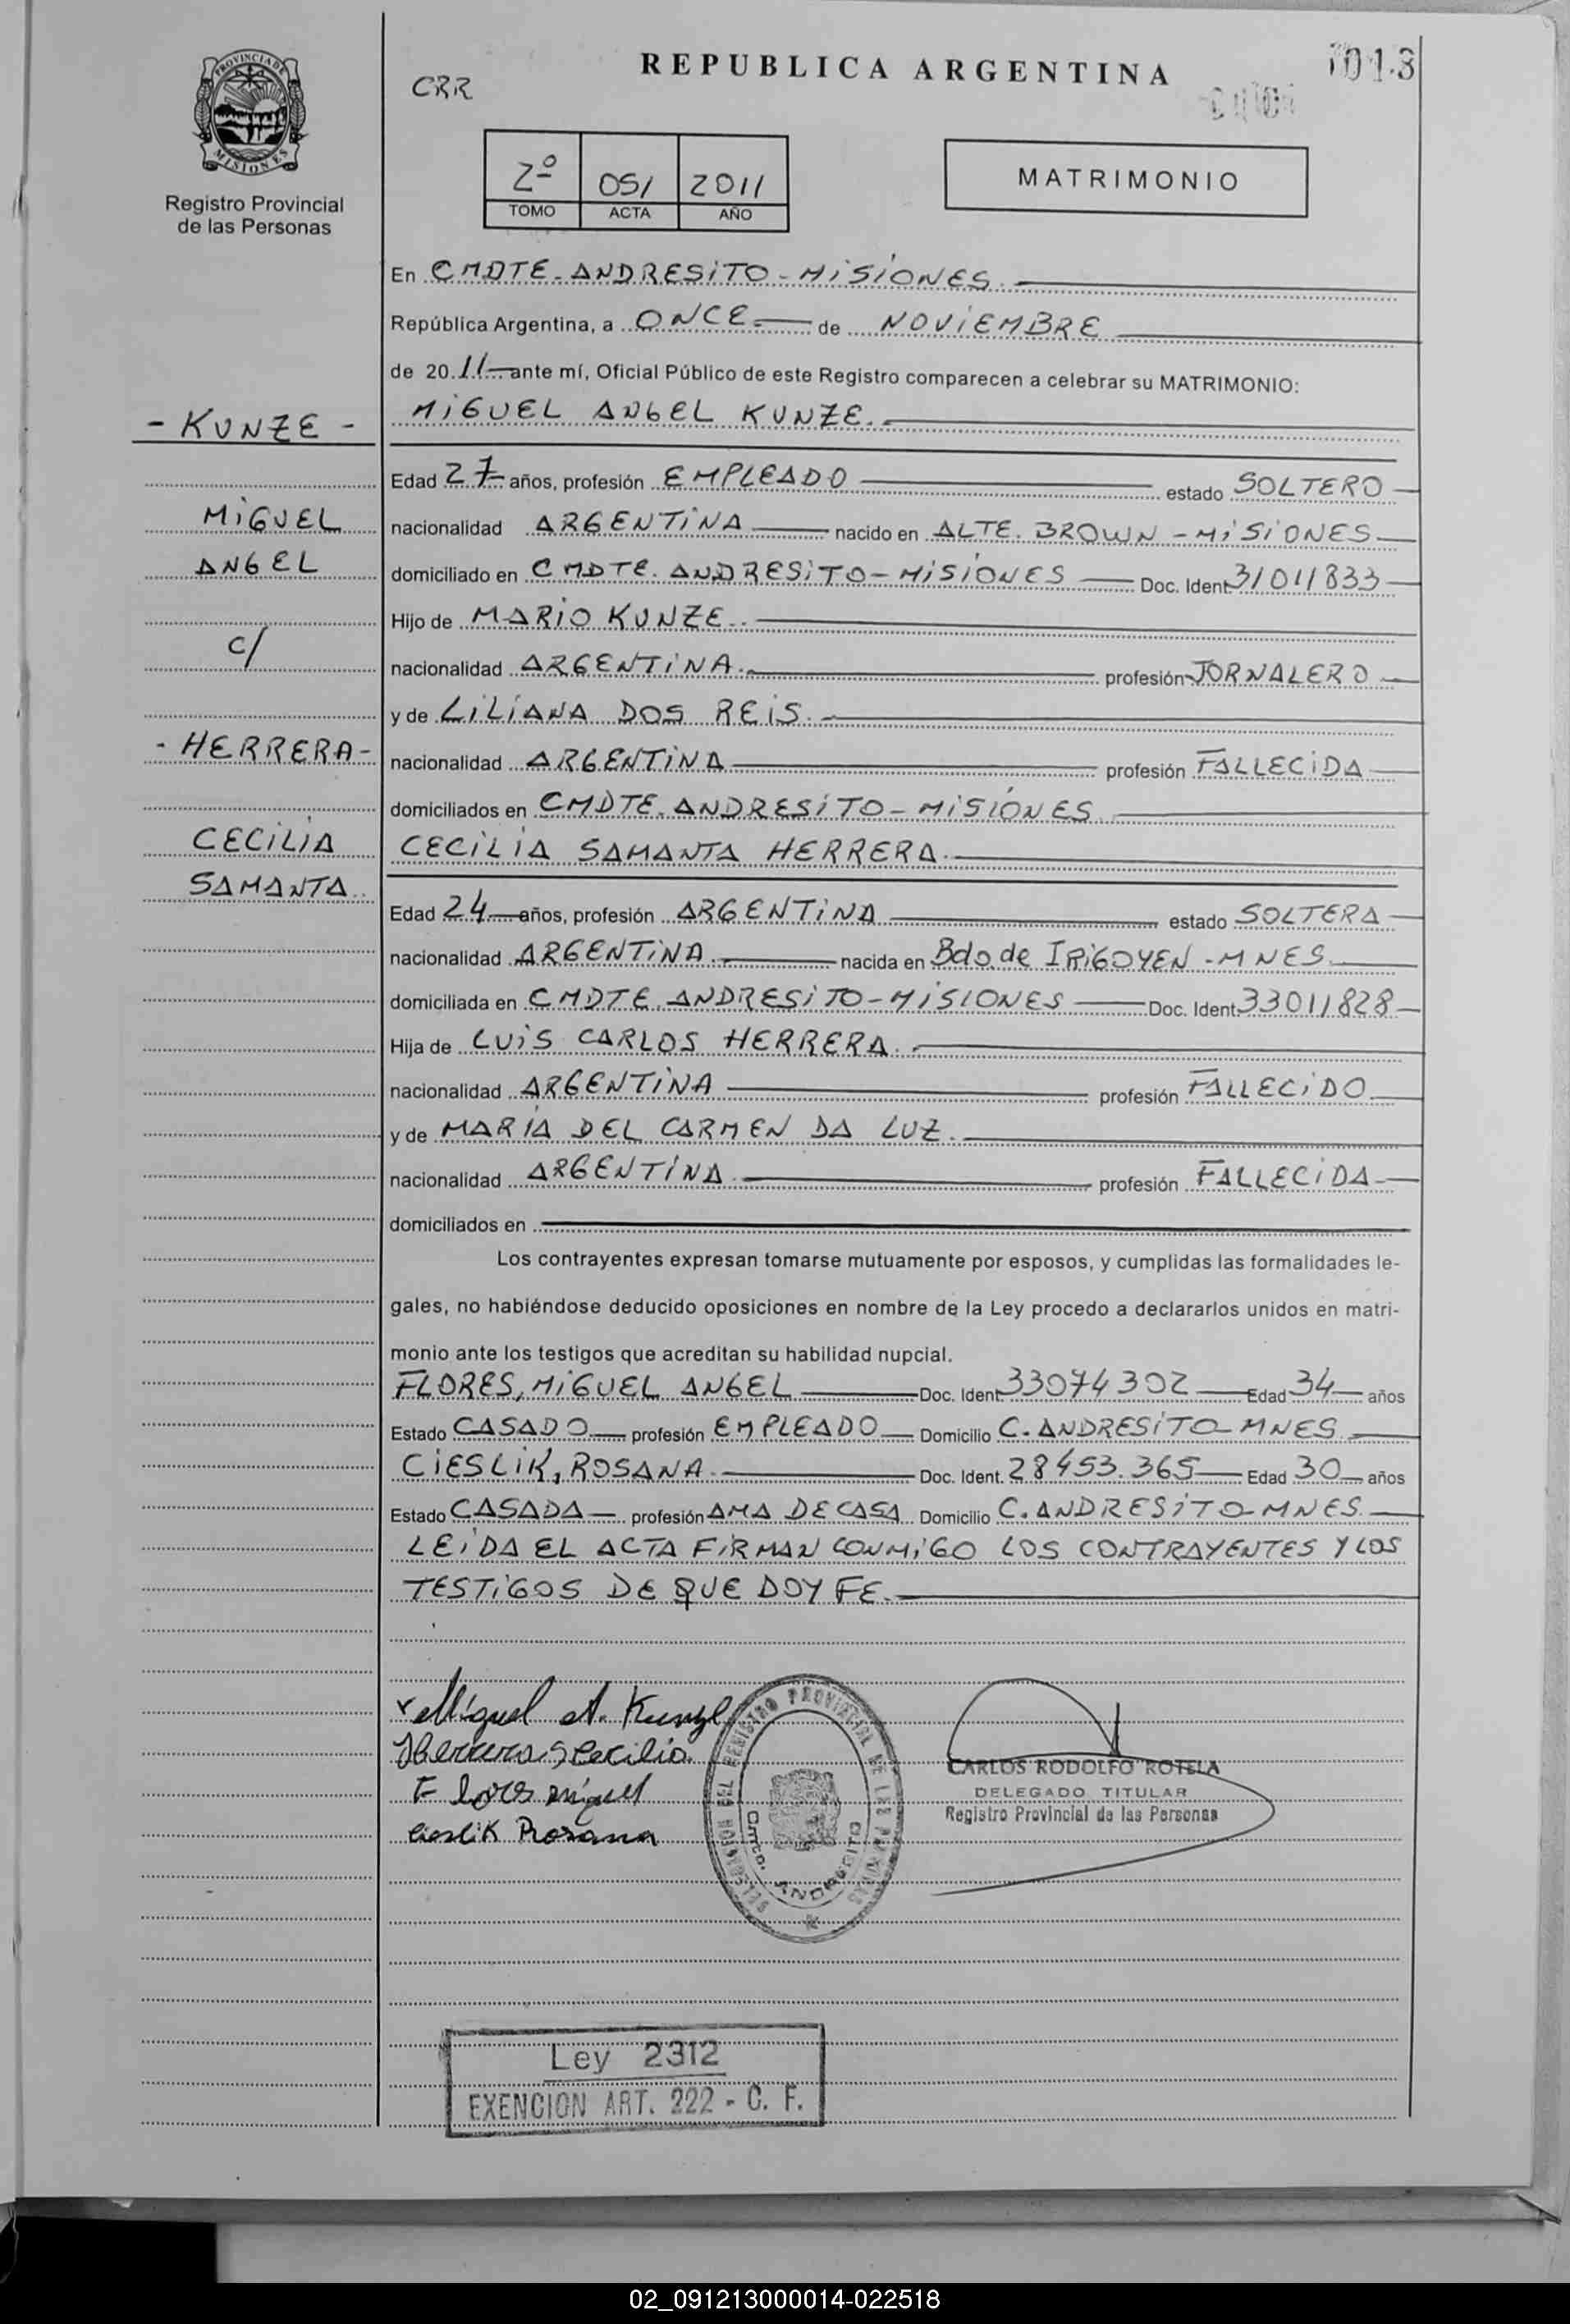 REPUBLICA ARGENTINA
1013
CRR
PROVINCIA DE
MISIONES
Registro Provincial
de las Personas
2º 051 2011
TOMO ACTA AÑO
MATRIMONIO
En CMDTE. ANDRESITO - MISIONES
República Argentina, a ONCE de NOVIEMBRE
de 2011 ante mí, Oficial Público de este Registro comparecen a celebrar su MATRIMONIO:
- KUNZE -
MIGUEL ANGEL KUNZE.
Edad 27 años, profesión EMPLEADO estado SOLTERO
MIGUEL
nacionalidad ARGENTINA nacido en ALTE. BROWN - MISIONES
ANGEL
domiciliado en CMDTE. ANDRESITO - MISIONES Doc. Ident. 31011833
Hijo de MARIO KUNZE.
c/
nacionalidad ARGENTINA. profesión JORNALERO
y de LILIANA DOS REIS.
- HERRERA -
nacionalidad ARGENTINA profesión FALLECIDA
domiciliados en CMDTE. ANDRESITO - MISIONES
CECILIA
CECILIA SAMANTA HERRERA.
SAMANTA
Edad 24 años, profesión ARGENTINA estado SOLTERA
nacionalidad ARGENTINA. nacida en Bdo. de IRIGOYEN - MNES.
domiciliada en CMDTE. ANDRESITO - MISIONES Doc. Ident. 33011828
Hija de LUIS CARLOS HERRERA.
nacionalidad ARGENTINA profesión FALLECIDO
y de MARIA DEL CARMEN DA LUZ.
nacionalidad ARGENTINA. profesión FALLECIDA
domiciliados en
Los contrayentes expresan tomarse mutuamente por esposos, y cumplidas las formalidades le-
gales, no habiéndose deducido oposiciones en nombre de la Ley procedo a declararlos unidos en matri-
monio ante los testigos que acreditan su habilidad nupcial.
FLORES, MIGUEL ANGEL Doc. Ident. 33074302 Edad 34 años
Estado CASADO profesión EMPLEADO Domicilio C. ANDRESITO - MNES.
CIESLIK, ROSANA. Doc. Ident. 28453.365 Edad 30 años
Estado CASADA profesión AMA DE CASA Domicilio C. ANDRESITO - MNES.
LEIDA EL ACTA FIRMAN CONMIGO LOS CONTRAYENTES Y LOS
TESTIGOS DE QUE DOY FE.
Miguel A. Kunze
Herrera S Cecilia
Flores Miguel
Cieslik Rosana
DELEGACION DEL REGISTRO PROVINCIAL DE LAS PERSONAS
Cmte. ANDRESITO
CARLOS RODOLFO ROTELA
DELEGADO TITULAR
Registro Provincial de las Personas
Ley 2312
EXENCION ART. 222 - C. F.
02_091213000014-022518